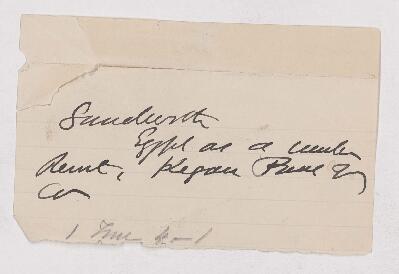 Sandwith
Egypt as a winter
Resort, Kegan Paul &
Co